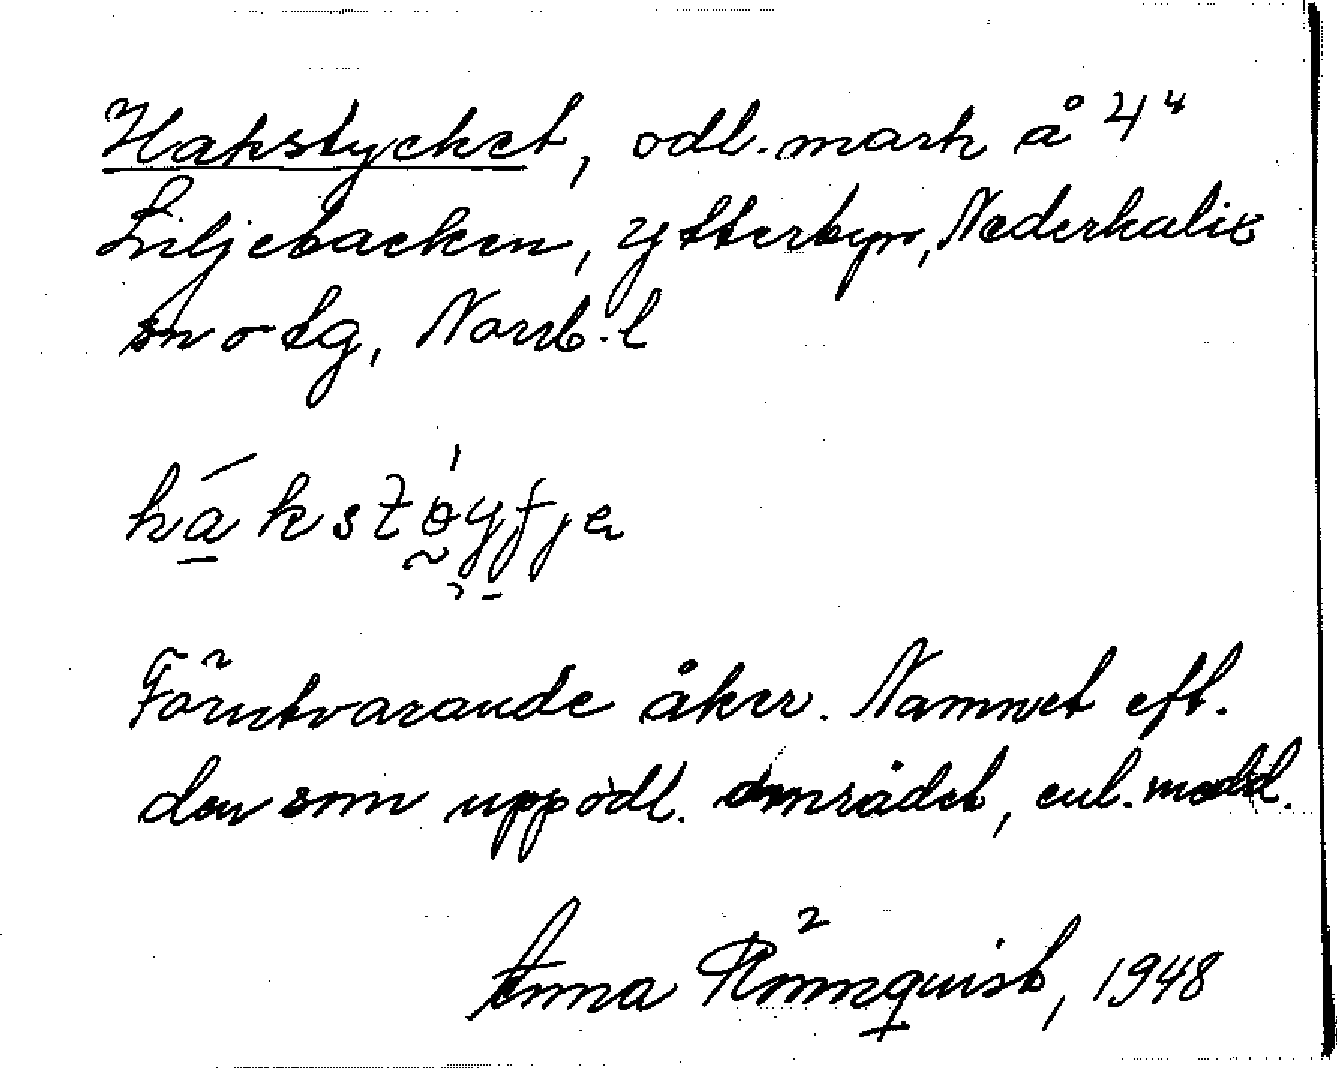 Hakstycket, odl. mark å 4"
Liljebacken, Ytterbyn, Nederkalix
sn o tg, Norrb. l
Förutvarande åker. Namnet eft.
den som uppodl. området, enl. medd.
Anna Rönnquist, 1948